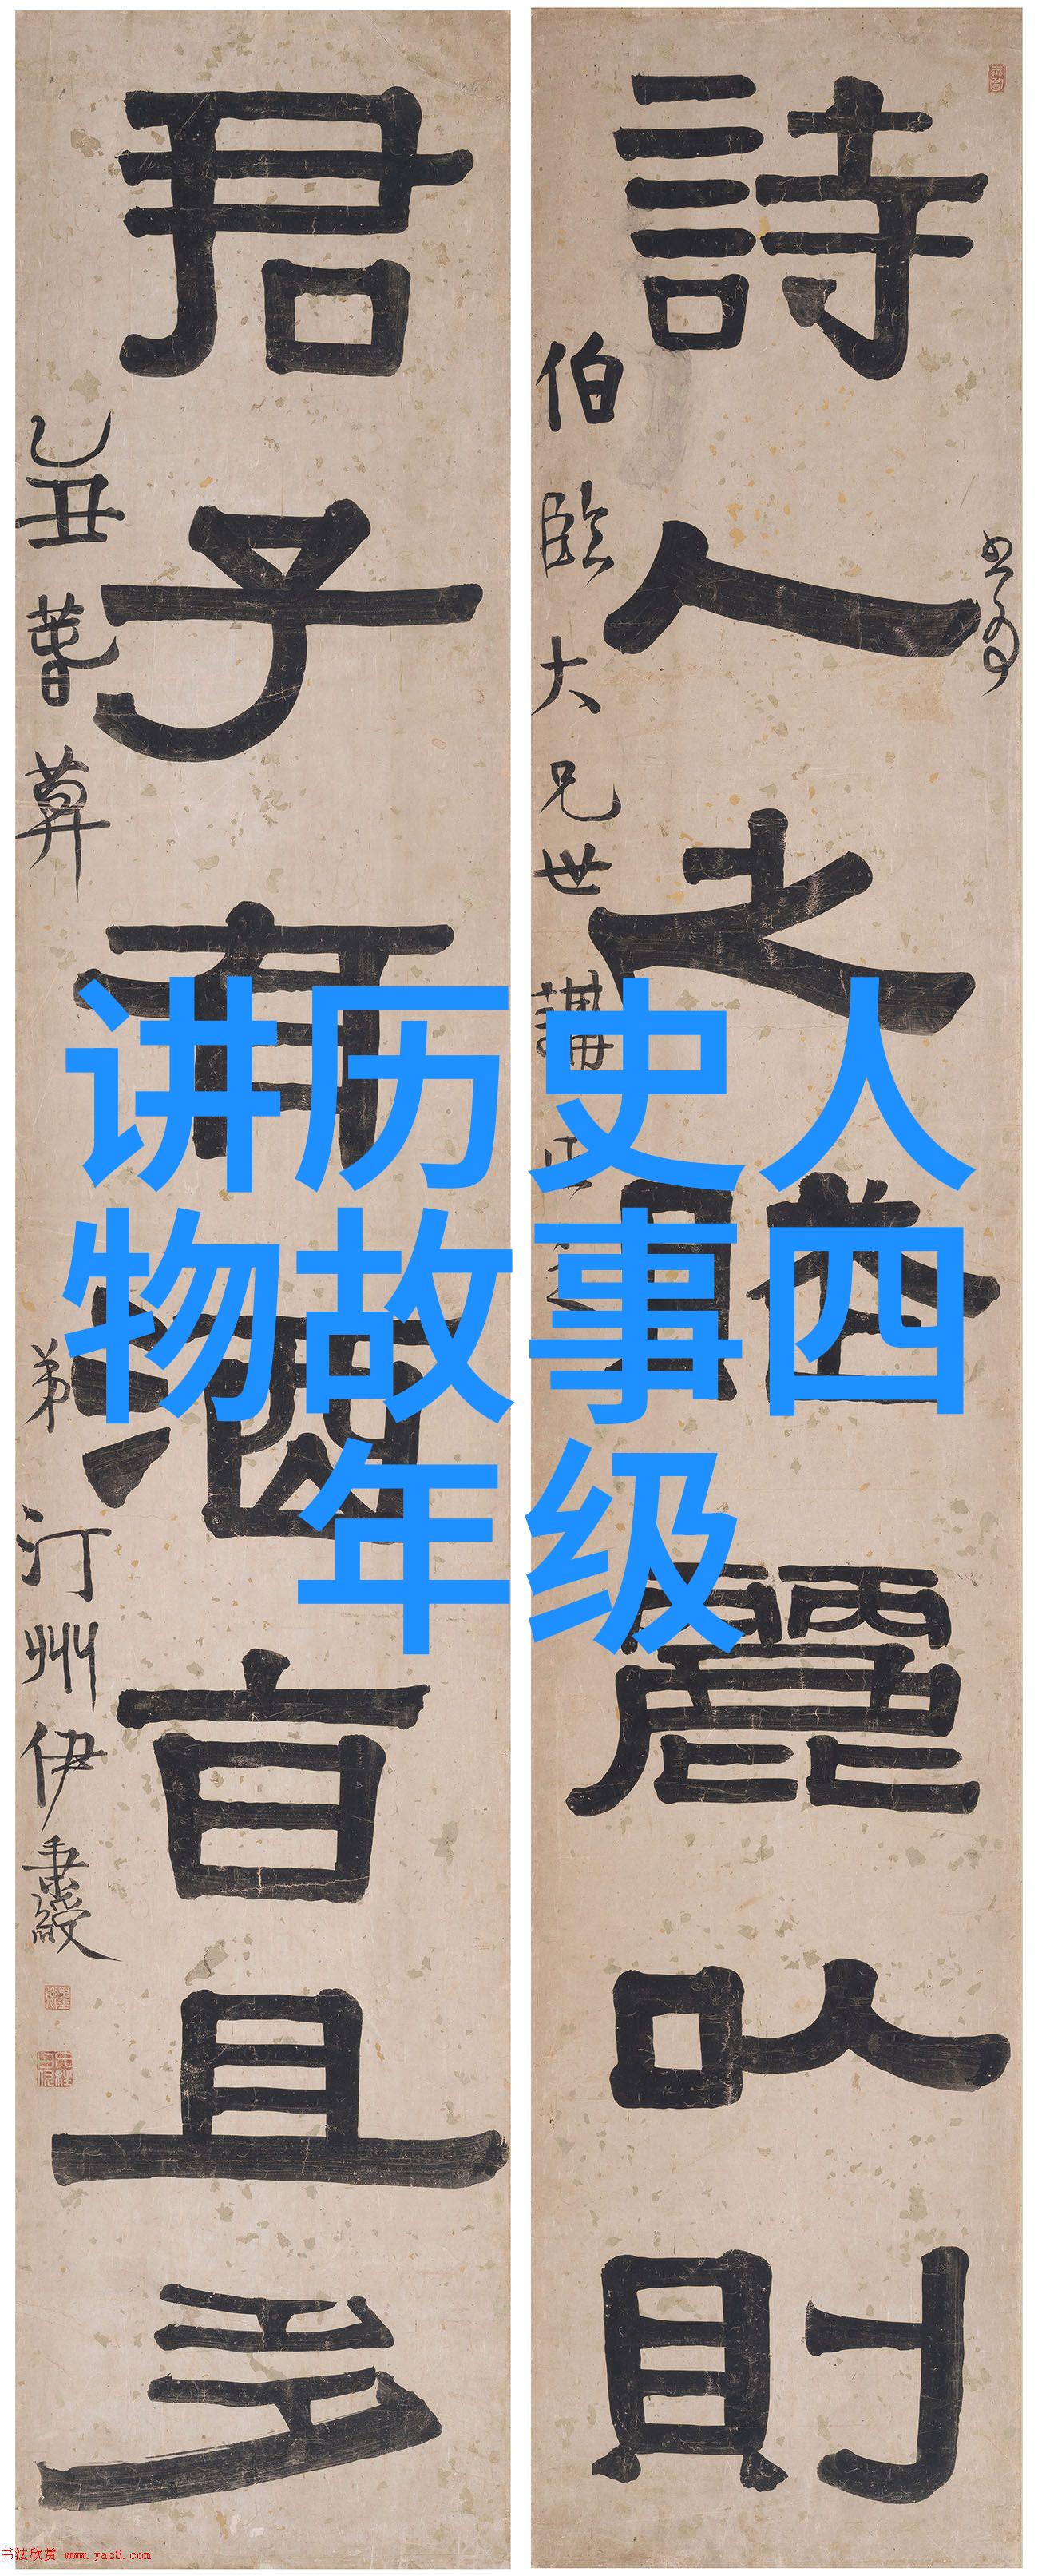 讲历史人
物故事四
年级
詩人之麗以則
伯臨大兄世講正
君子有酒旨且多
乙丑
弟汀州伊秉綬
书法欣赏 www.yac8.com